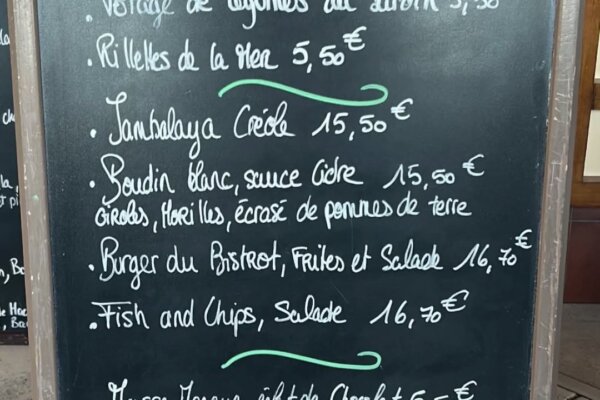 Potage de légumes du jardin 5,50
• Rillettes de la Mer 5,50€
• Jambalaya Créole 15,50€
• Boudin blanc, sauce Cidre 15,50€
Girolles, Morilles, écrasé de pommes de terre
• Burger du Bistrot, Frites et Salade 16,70€
• Fish and Chips, Salade 16,70€
Chocolat